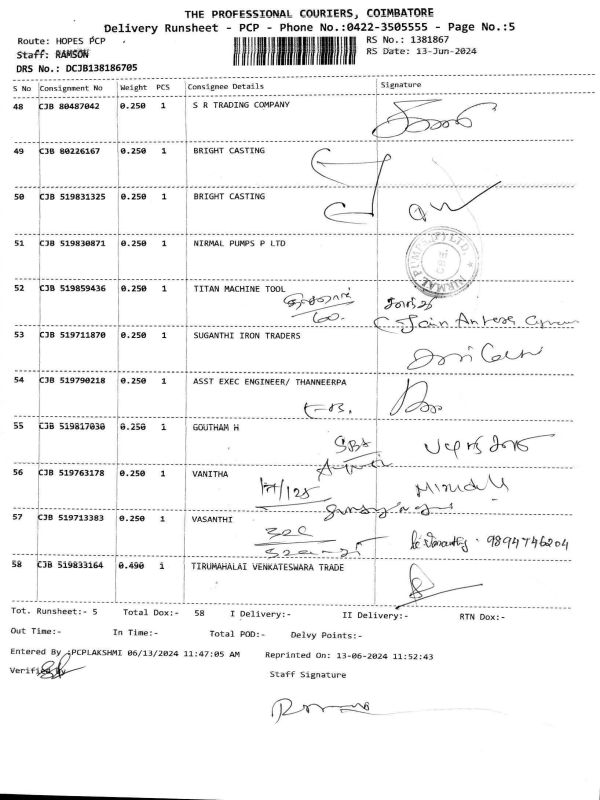 THE PROFESSIONAL COURIERS, COIMBATORE
Delivery Runsheet - PCP - Phone No.:0422-3505555 - Page No.:5
Route: HOPES PCP
RS No.: 1381867
Staff: RAMSON
RS Date: 13-Jun-2024
DRS No.: DCJB138186705
S No Consignment No Weight PCS Consignee Details Signature
48 CJB 80487042 0.250 1 S R TRADING COMPANY
49 CJB 80226167 0.250 1 BRIGHT CASTING
50 CJB 519831325 0.250 1 BRIGHT CASTING
51 CJB 519830871 0.250 1 NIRMAL PUMPS P LTD
52 CJB 519859436 0.250 1 TITAN MACHINE TOOL
53 CJB 519711870 0.250 1 SUGANTHI IRON TRADERS
54 CJB 519790218 0.250 1 ASST EXEC ENGINEER/ THANNEERPA
55 CJB 519817030 0.250 1 GOUTHAM H
56 CJB 519763178 0.250 1 VANITHA
57 CJB 519713383 0.250 1 VASANTHI
9894746204
58 CJB 519833164 0.490 1 TIRUMAHALAI VENKATESWARA TRADE
Tot. Runsheet:- 5 Total Dox:- 58 I Delivery:- II Delivery:- RTN Dox:-
Out Time:- In Time:- Total POD:- Delvy Points:-
Entered By :PCPLAKSHMI 06/13/2024 11:47:05 AM Reprinted On: 13-06-2024 11:52:43
Verified By
Staff Signature